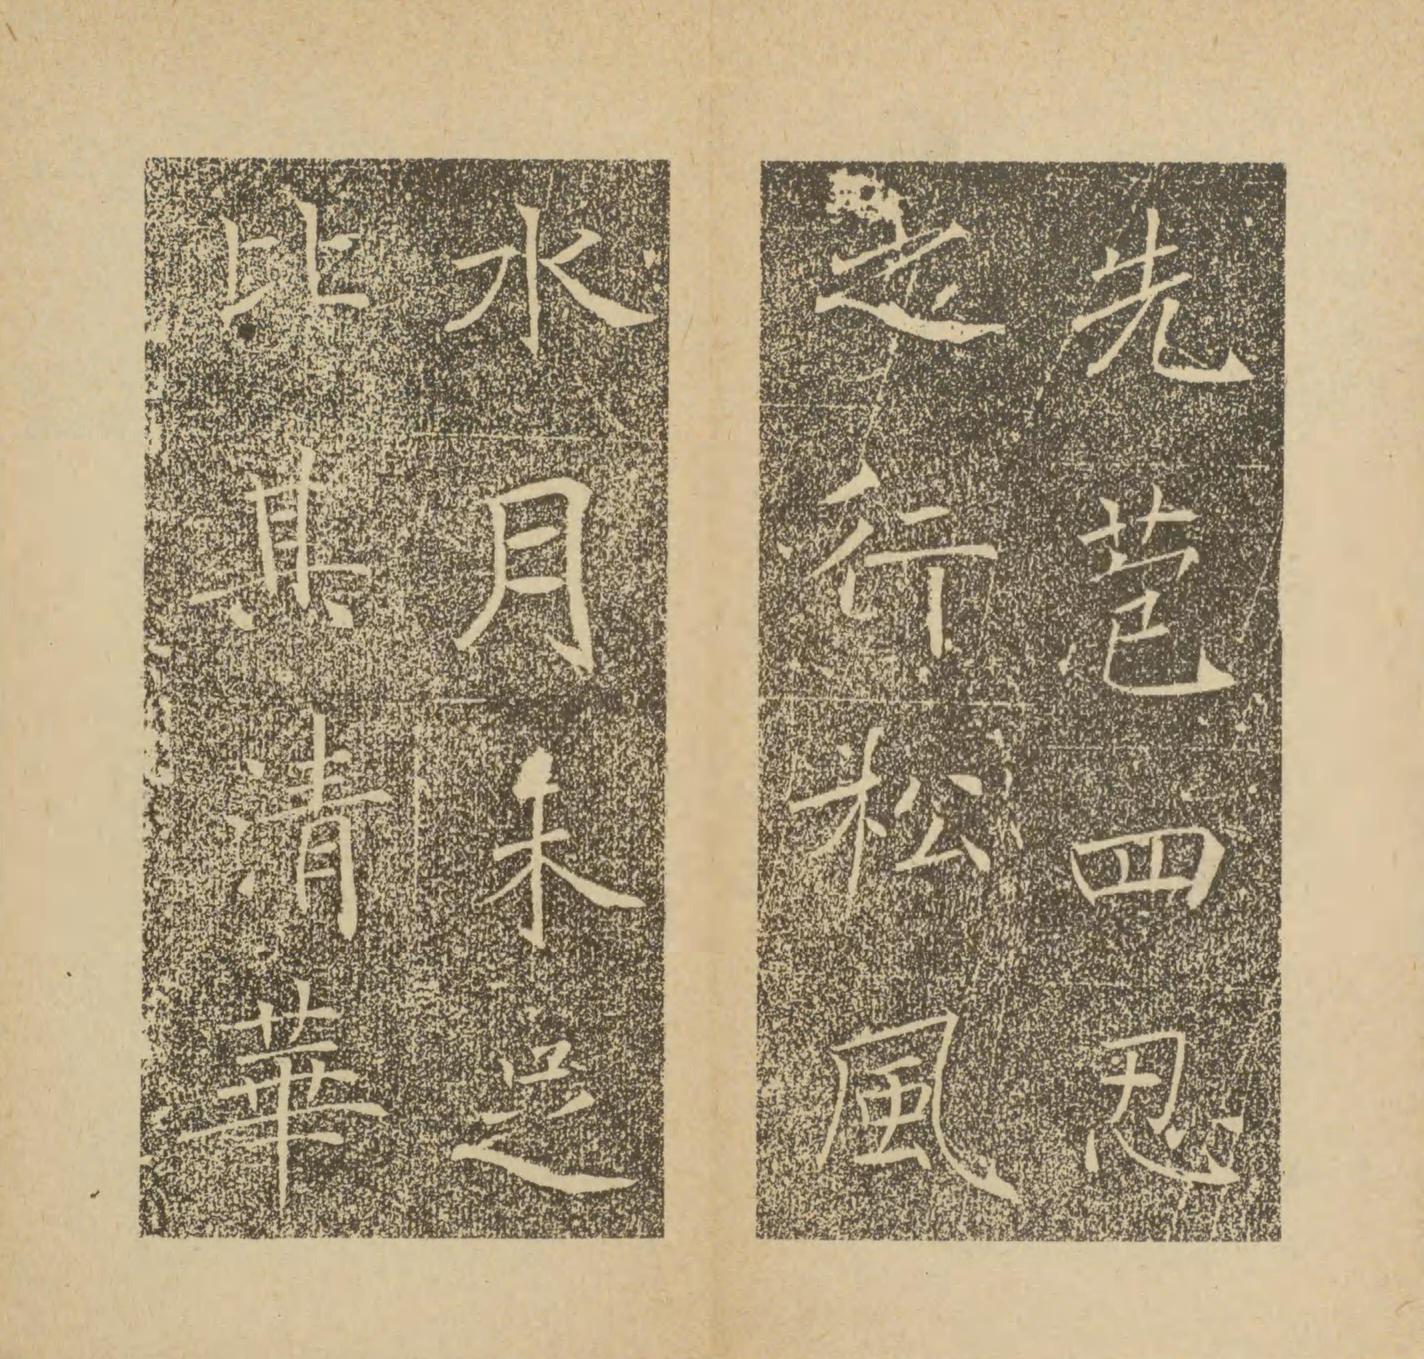 先苞四忍
之行松風
水月未足
比其清華